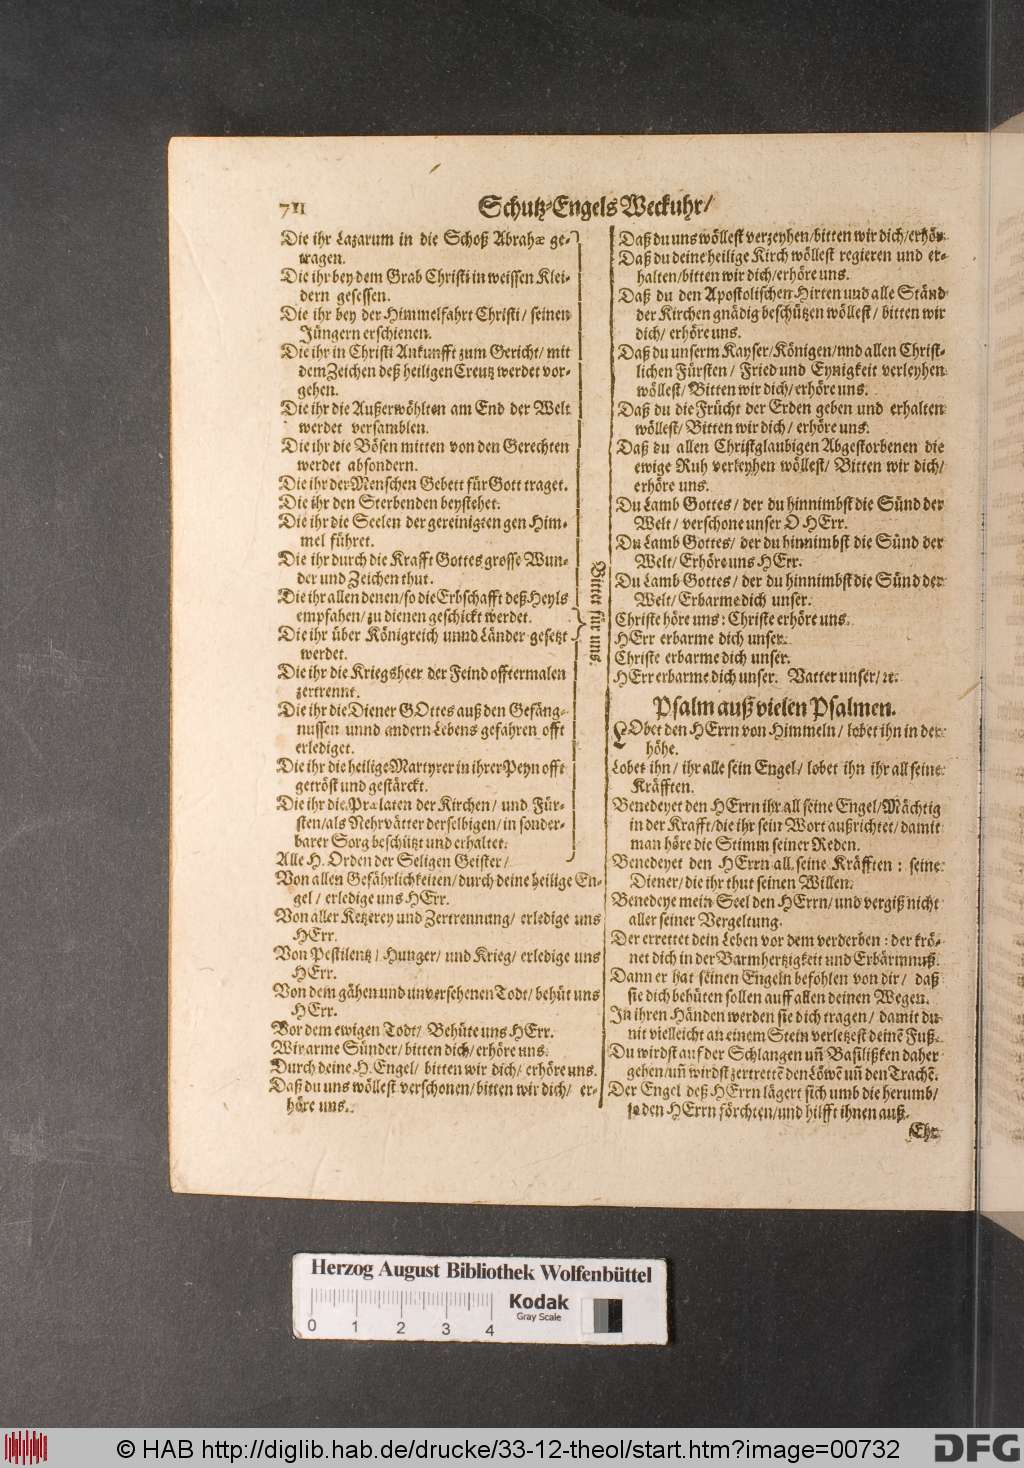 711
Schutz-Engels Weckuhr/
Die ihr Lazarum in die Schoß Abrahæ ge-
tragen.
Die ihr bey dem Grab Christi in weissen Klei-
dern gesessen.
Die ihr bey der Himmelfahrt Christi/ seinen
Jüngern erschienen.
Die ihr in Christi Ankunfft zum Gericht/ mit
dem Zeichen deß heiligen Creutz werdet vor-
gehen.
Die ihr die Außerwöhlten am End der Welt
werdet versamblen.
Die ihr die Bösen mitten von den Gerechten
werdet absondern.
Die ihr der Menschen Gebett für Gott traget.
Die ihr den Sterbenden beystehet.
Die ihr die Seelen der gereinigten gen Him-
mel führet.
Die ihr durch die Krafft Gottes grosse Wun-
der und Zeichen thut.
Die ihr allen denen/ so die Erbschafft deß Heyls
empfahen/ zu dienen geschickt werdet.
Die ihr über Königreich unnd Länder gesetzt
werdet.
Die ihr die Kriegsheer der Feind offtermalen
zertrennt.
Die ihr die Diener GOttes auß den Gefäng-
nussen unnd andern Lebens gefahren offt
erlediget.
Die ihr die heilige Martyrer in ihrer Peyn offt
getröst und gestärckt.
Die ihr die Prælaten der Kirchen/ und Für-
sten/ als Nehrvätter derselbigen/ in sonder-
barer Sorg beschützt und erhaltet.
Alle H. Orden der Seligen Geister/
Bittet für uns.
Von allen Gefährlichkeiten/ durch deine heilige En-
gel/ erledige uns HErr.
Von aller Ketzerey und Zertrennung/ erledige uns
HErr.
Von Pestilentz/ Hunger/ und Krieg/ erledige uns
HErr.
Von dem gähen und unversehenen Todt/ behüt uns
HErr.
Vor dem ewigen Todt/ Behüte uns HErr.
Wir arme Sünder/ bitten dich/ erhöre uns.
Durch deine H. Engel/ bitten wir dich/ erhöre uns.
Daß du uns wöllest verschonen/ bitten wir dich/ er-
höre uns.
Daß du uns wöllest verzeyhen/ bitten wir dich/ erhör.
Daß du deine heilige Kirch wöllest regieren und er-
halten/ bitten wir dich/ erhöre uns.
Daß du den Apostolischen Hirten und alle Ständ
der Kirchen gnädig beschützen wöllest/ bitten wir
dich/ erhöre uns.
Daß du unserm Kayser/ Königen/ und allen Christ-
lichen Fürsten/ Fried und Eynigkeit verleyhen
wöllest/ Bitten wir dich/ erhöre uns.
Daß du die Frücht der Erden geben und erhalten
wöllest/ Bitten wir dich/ erhöre uns.
Daß du allen Christglaubigen Abgestorbenen die
ewige Ruh verleyhen wöllest/ Bitten wir dich/
erhöre uns.
Du Lamb Gottes/ der du hinnimbst die Sünd der
Welt/ verschone unser O HErr.
Du Lamb Gottes/ der du hinnimbst die Sünd der
Welt/ Erhöre uns HErr.
Du Lamb Gottes/ der du hinnimbst die Sünd der
Welt/ Erbarme dich unser.
Christe höre uns: Christe erhöre uns.
HErr erbarme dich unser.
Christe erbarme dich unser.
HErr erbarme dich unser. Vatter unser/ ꝛc.
Psalm auß vielen Psalmen.
LObet den HErrn von Himmeln/ lobet ihn in der
höhe.
Lobet ihn/ ihr alle sein Engel/ lobet ihn ihr all seine
Kräfften.
Benedeyet den HErrn ihr all seine Engel/ Mächtig
in der Krafft/ die ihr sein Wort außrichtet/ damit
man höre die Stimm seiner Reden.
Benedeyet den HErrn all seine Kräfften: seine
Diener/ die ihr thut seinen Willen.
Benedeye mein Seel den HErrn/ und vergiß nicht
aller seiner Vergeltung.
Der errettet dein Leben vor dem verderben: der krö-
net dich in der Barmhertzigkeit und Erbärmnuß.
Dann er hat seinen Engeln befohlen von dir/ daß
sie dich behüten sollen auff allen deinen Wegen.
In ihren Händen werden sie dich tragen/ damit du
nit vielleicht an einem Stein verletzest deinē Fuß.
Du wirdst auf der Schlangen uñ Basilißken daher
gehen/ uñ wirdst zertrettē den Löwē uñ den Trachē.
Der Engel deß HErrn lägert sich umb die herumb/
so den HErrn förchten/ und hilfft ihnen auß.
Ehr
Herzog August Bibliothek Wolfenbüttel
Kodak
Gray Scale
0 1 2 3 4
© HAB http://diglib.hab.de/drucke/33-12-theol/start.htm?image=00732
DFG